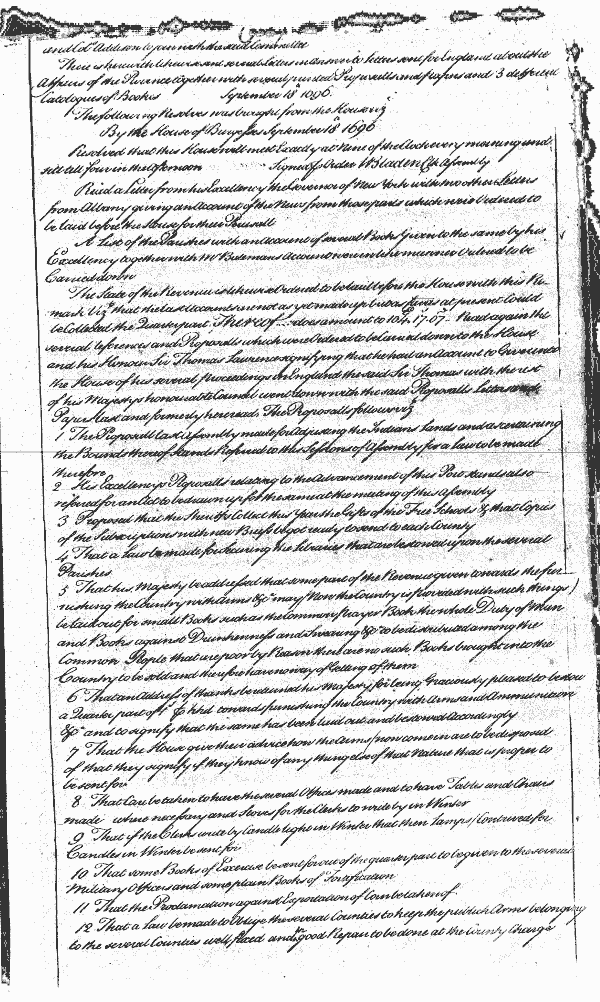 and Col.º Addison to joyn with the said Committee
There is herewith likewise and several Letters in answer to letters sent for England about the
Affairs of the Province together with several printed Proposalls and papers and 3 different
Catalogues of Books September 18th 1696.
The following Resolves was brought from the House viz
By the House of Burgesses September 18th 1696
Resolved that this House will meet Exactly at Nine of the Clock every morning and
sitt till four in the afternoon Signed p Order W Bladen Clk Assembly
Read a Letter from his Excellency the Governor of New York with two other Letters
from Albany giving an Account of the News from those parts which were ordered to
be laid before the House for their Perusall
A List of the Parishes with an Account of several Books Given to the same by his
Excellency together with Mr Account were in like manner Ordered to be
Carried down
The State of the Revenue is likewise ordered to be laid before the House with this Re-
mark Viz.t that the last Accounts are not as yet made up but as farr as at present Could
be Collected the Quarter part thereof does amount to 104. 17. 07. Read again the
several references and Proposalls which were Ordered to be carried down to the House
and his Honour Sir Thomas Lawrence signifying that he had an Account to Communicate
the House of his several proceedings in England the said Sir Thomas with the rest
of his Majestys honourable Council went down with the said Proposalls Letters and
Papers last and formerly here read. The Proposalls follow viz
1 The Proposall last Assembly made for Adjusting the Indians Lands and ascertaining
the Bounds thereof stands Referred to this Sessions of Assembly for a Law to be made
therefore
2 His Excellencys Proposalls relating to the Advancement of this Port stands also
referred for an Act to be drawn up for the same at the meeting of this Assembly
3 Proposed that the Sheriffs Collect this Year the Gifts of the Free Schools & that Copies
of the Subscriptions with new Briefs be got ready to send to each County
4 That a Law be made for securing the Libraries that are bestowed upon the several
Parishes
5 That his Majesty be addressed that some part of the Revenue given towards the fur-
nishing the Country with Arms &c may (Now the Country is provided with such things)
be laid out for small Books such as the Common prayer Book the whole Duty of Man
and Books against Drunkenness and Swearing &c to be distributed among the
Common People that are poor by Reason there are no such Books brought into the
Country to be sold and therefore have no way of getting of them
6 That an Address of thanks be made to his Majesty for being Graciously pleased to bestow
a Quarter part of ye p hhd towards furnishing the Country with Arms and Ammunition
&c and to signify that the same has been laid out and bestowed accordingly
7 That the House give their advice how the Arms now come in are to be disposed
of that they signify if they know of any thing else of that Nature that is proper to
be sent for
8 That Care be taken to have the several Offices made and to have Tables and Chairs
made where necessary and Stoves for the Clerks to write by in Winter
9 That if the Clerks write by Candle light in Winter that then Lamps / Contrived for
Candles in Winter be sent for
10 That some Books of Exercise be sent for out of the quarter part to be given to the several
Military Officers and some plain Books of Fortification
11 That the Proclamation against Exportation of Corn be taken of
12 That a Law be made to Oblige the several Counties to keep the publick Arms belonging
to the several Counties well fixed and in good Repair to be done at the County Charge